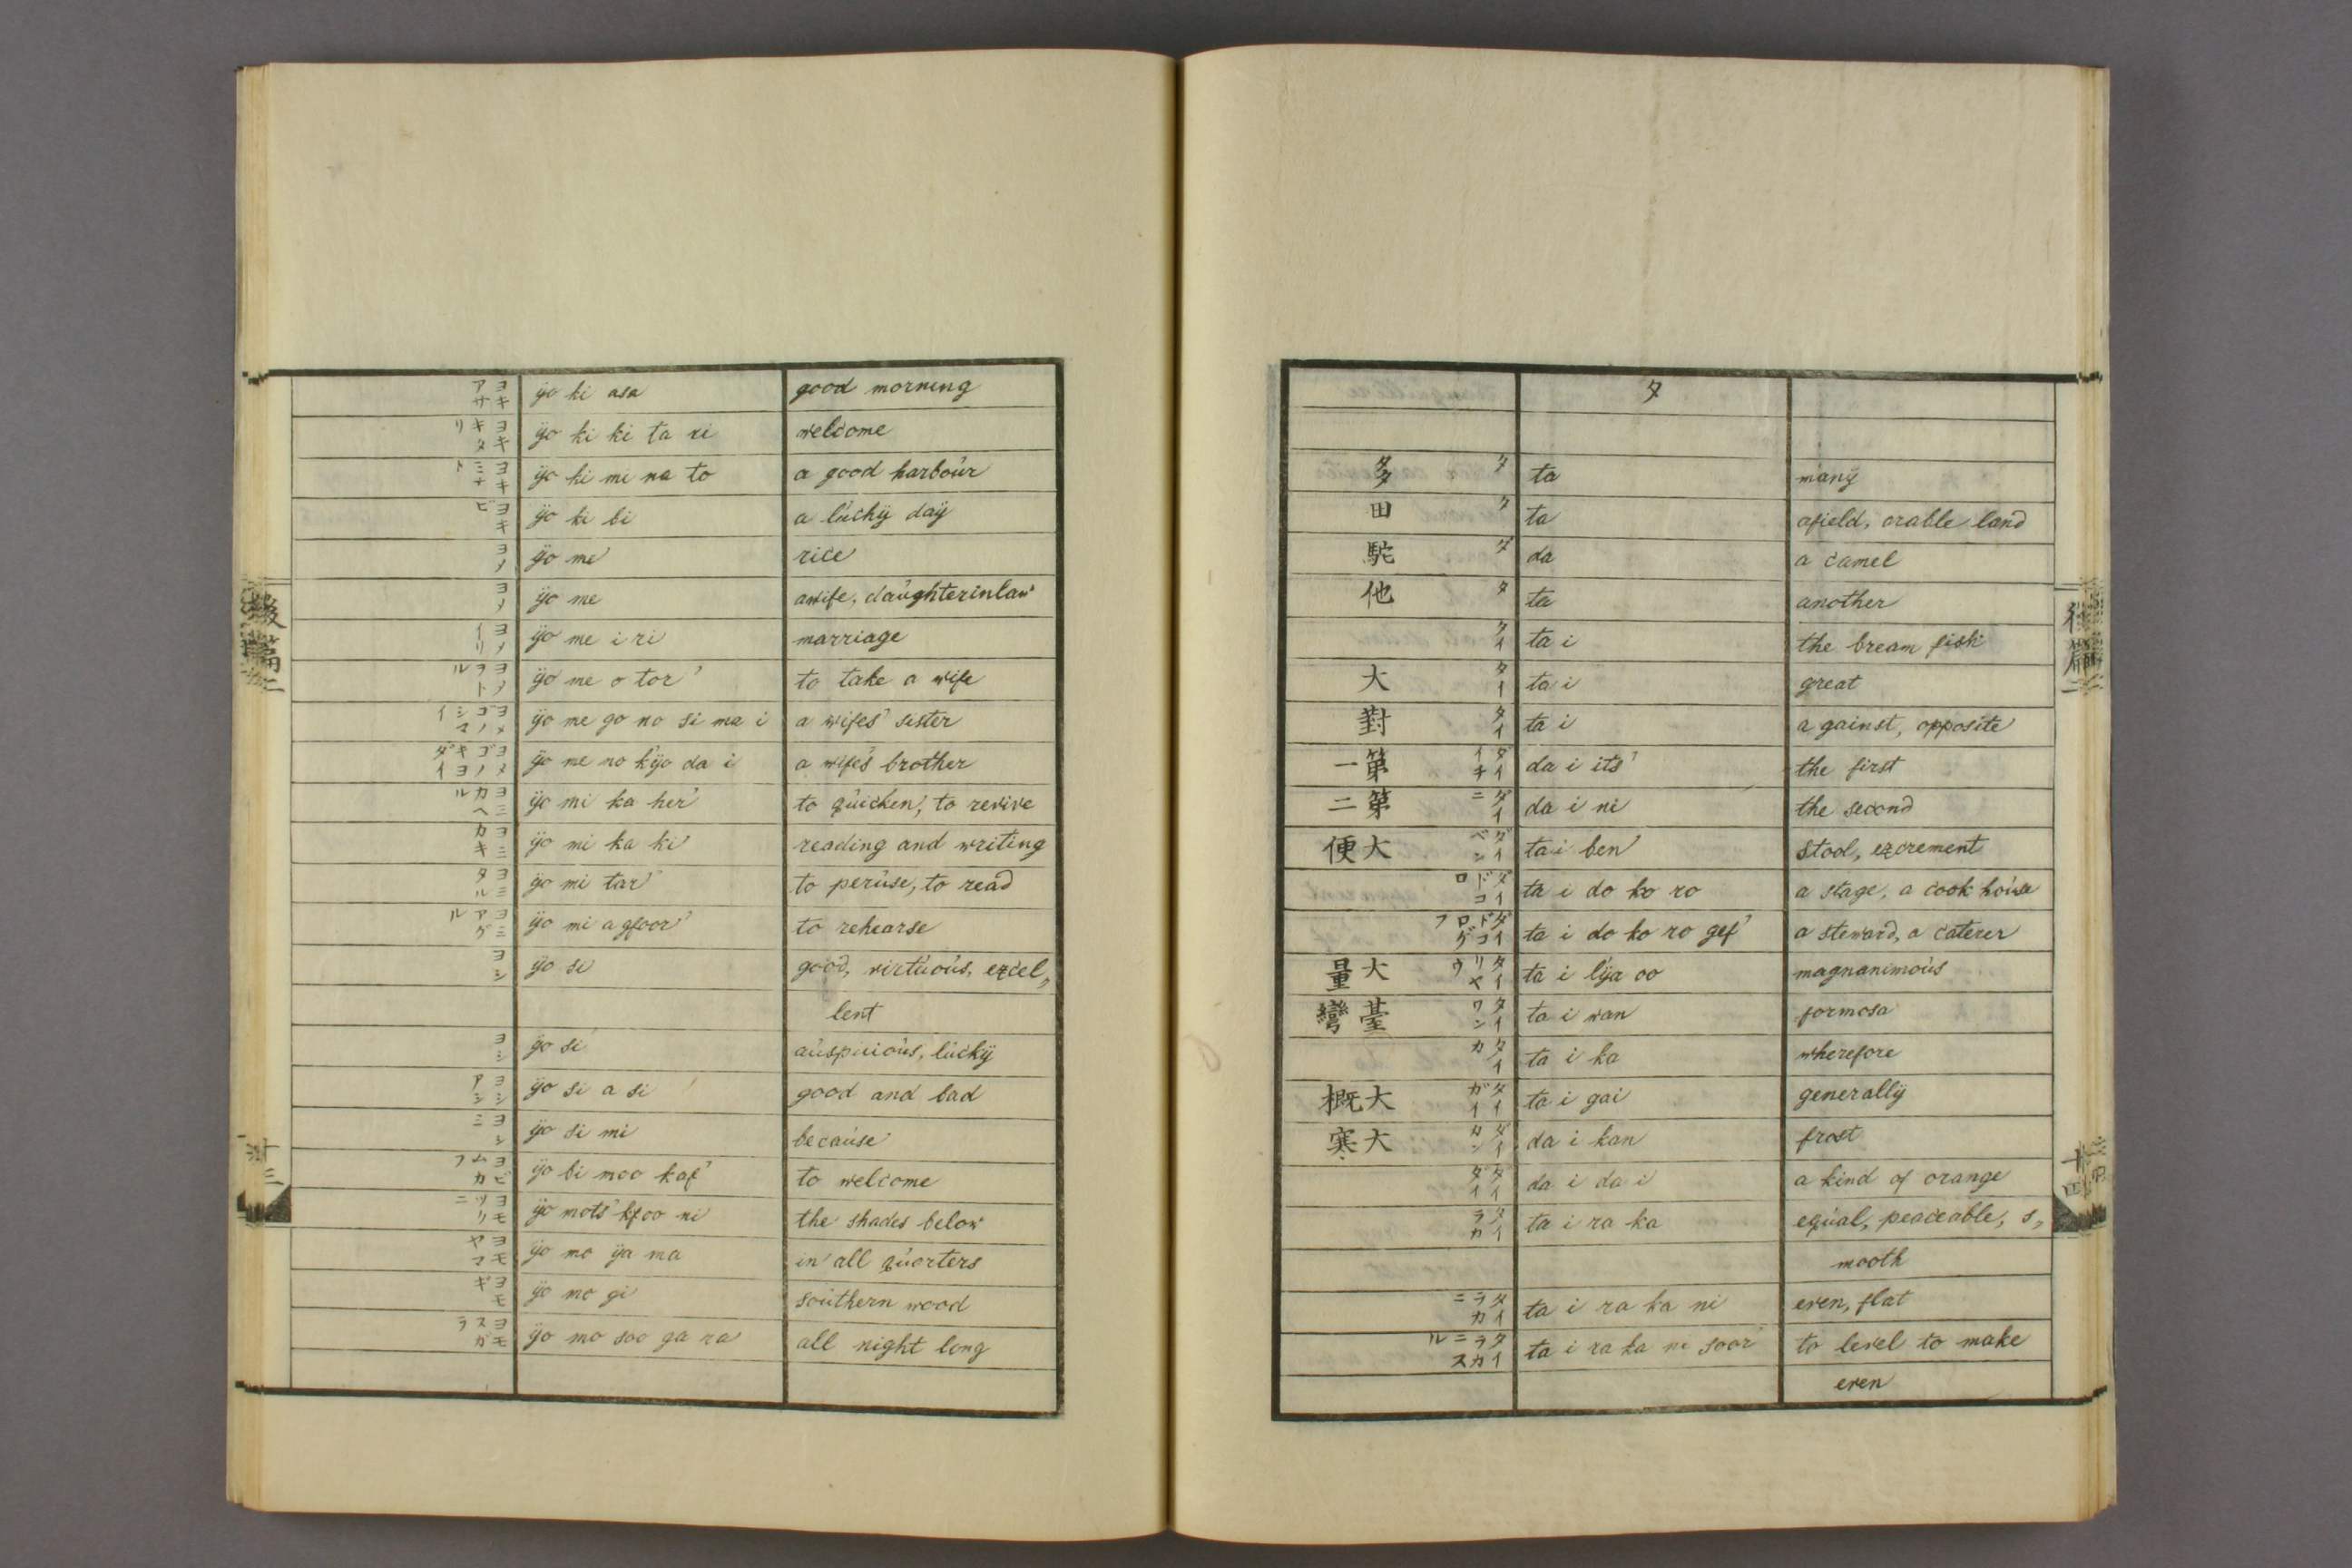 ヨキアサ ÿo ki asa good morning
ヨキキタリ ÿo ki ki ta ri welcome
ヨキミナト ÿo ki mi na to a good harboúr
ヨキビ ÿo ki bi a lúckÿ daÿ
ヨメ ÿo me rice
ヨメ ÿo me awife, daúghterinlaw
ヨメイリ ÿo me i ri marriage
ヨメヲトル ÿo me o tor' to take a wife
ヨメゴノシマイ ÿo me go no si ma i a wifes' sister
ヨメゴノキヨダイ ÿo me no kÿo da i a wife's brother
ヨミカヘル ÿo mi ka her' to qúicken, to revive
ヨミカキ ÿo mi ka ki reading and writing
ヨミタル ÿo mi tar' to perúse, to read
ヨミアゲル ÿo mi a gfoor' to rehearse
ヨシ ÿo si good, virtúoús, excel„
lent
ヨシ ÿo si aúspicioús, lúckÿ
ヨシアシ ÿo si a si good and bad
ヨシミ ÿo si mi becaúse
ヨビムカフ ÿo bi moo kaf' to welcome
ヨモツリニ ÿo mots' kfoo ni the shades below
ヨモヤマ ÿo mo ÿa ma in all qúorters
ヨモギ ÿo mo gi soúthern wood
ヨモスガラ ÿo mo soo ga ra all night long
綴篇二
十三
タ
多 タ ta manÿ
田 タ ta afield, orable land
駝 ダ da a camel
他 タ ta another
タイ ta i the bream fish
大 タイ ta i great
對 タイ ta i a gainst, opposite
第一 ダイイチ da i its' the first
第二 ダイニ da i ni the second
大便 ダイベン ta i ben stool, excrement
ダイドコロ ta i do ko ro a stage, a cook hoúse
ダイドコログフ ta i do ko ro gef' a steward, a caterer
大量 タイリヤウ ta i lÿa oo magnanimoús
臺灣 タイワン ta i wan formosa
タイカ ta i ka wherefore
大概 タイガイ ta i gai generallÿ
大寒 ダイカン da i kan frost
ダイダイ da i da i a kind of orange
タイラカ ta i ra ka eqúal, peaceable, s„
mooth
タイラカニ ta i ra ka ni even, flat
タイラカニスル ta i ra ka ni soor' to level to make
even